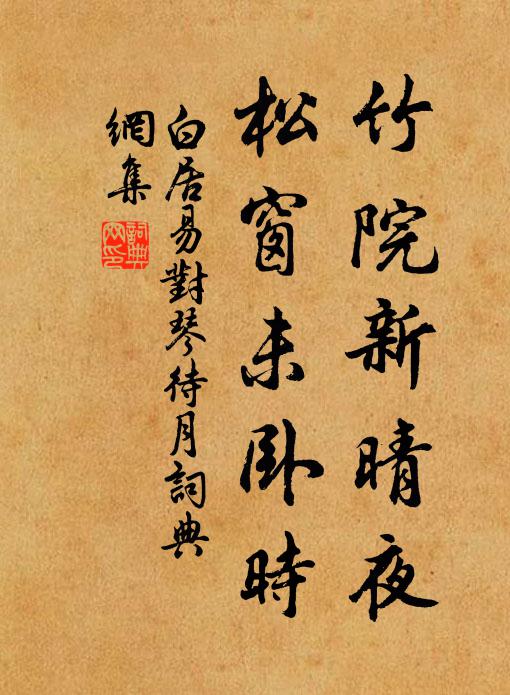 竹院新晴夜
松窗未臥時
白居易對琴待月詞典
網集
詞典
網印